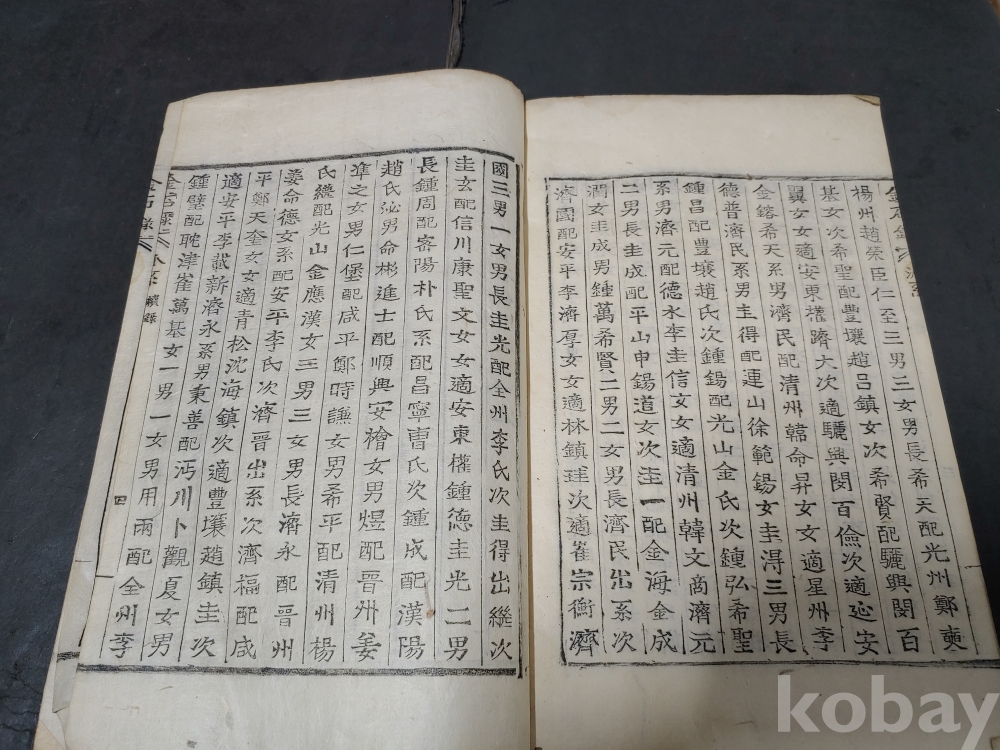 楊州趙榮臣仁至三男三女男長希天配光州鄭
基女次希聖配豊壤趙呂鎮女次希賢配驪興閔百
翼女女適安東權躋大次適驪興閔百儉次適延安
金鎔希天系男濟民配清州韓命昇女女適星州李
德普濟民系男圭得配連山徐範錫女圭淂三男長
鍾昌配豊壤趙氏次鍾錫配光山金氏次鍾弘希聖
系男濟元配德水李圭信女女適清州韓文商濟元
二男長圭成配平山申錫道女次圭一配金海金成
潤女圭成男鍾萬希賢二男二女男長濟民出系次
濟國配安平李濟厚女女適林鎮珪次適崔宗衡濟
國三男一女男長圭光配全州李氏次圭得出繼次
圭玄配信川康聖文女女適安東權鍾德圭光二男
長鍾周配密陽朴氏系配昌寧曺氏次鍾成配漢陽
趙氏泌男命彬進士配順興安檜女男煜配晉州姜
準之女男仁堡配咸平鄭時謙女男希平配清州楊
氏繼配光山金應漢女三男三女男長濟永配晉州
姜命德女系配安平李氏次濟晉出系次濟楅配咸
平鄭天奎女女適青松沈海鎮次適豊壤趙鎮圭次
適安平李載新濟永系男秉善配沔川卜觀夏女男
鍾璧配耽津崔萬基女一男一女男用兩配全州李
金石錄
四
kobay